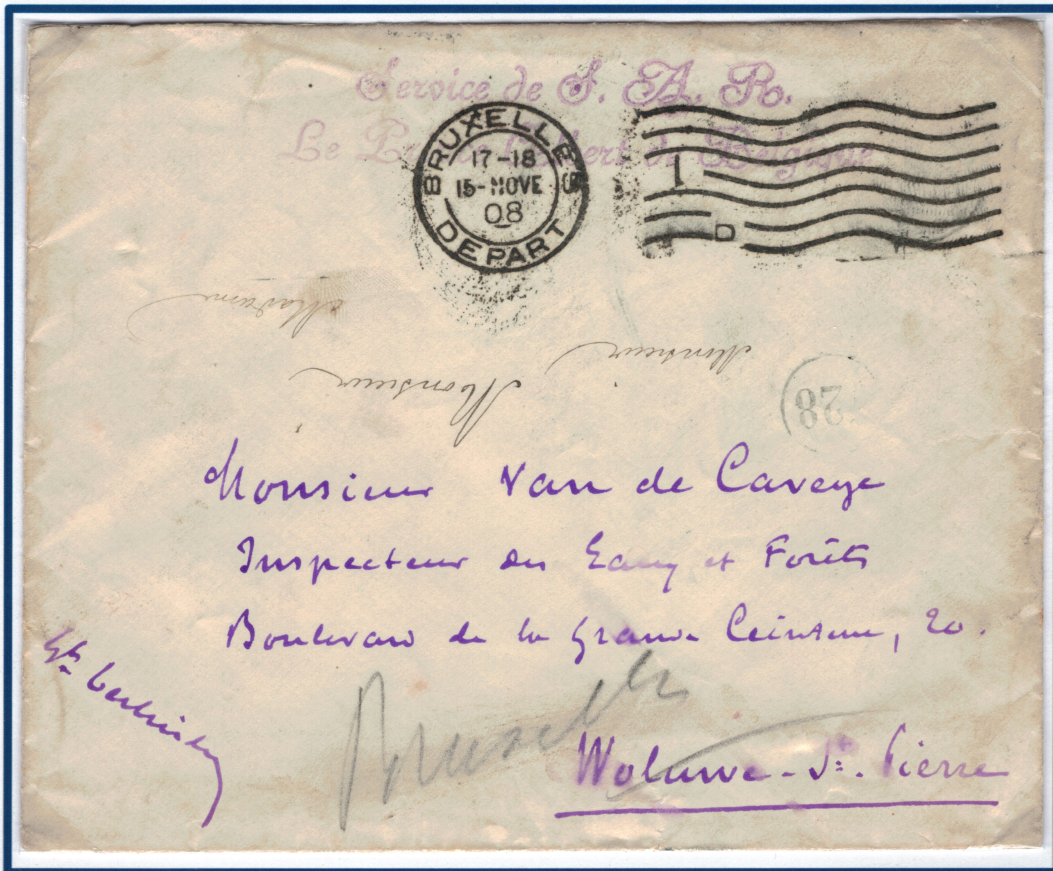 Service de S. A. R.
Le Prince Albert de Belgique
BRUXELLES
17-18
15-NOVE
08
DEPART
1
D
Madame
Monsieur
Monsieur
28
Monsieur Van de Caveye
Inspecteur des Eaux et Forêts
Boulevard de la Grande Ceinture, 20.
Bruxelles
Woluwe-St. Pierre